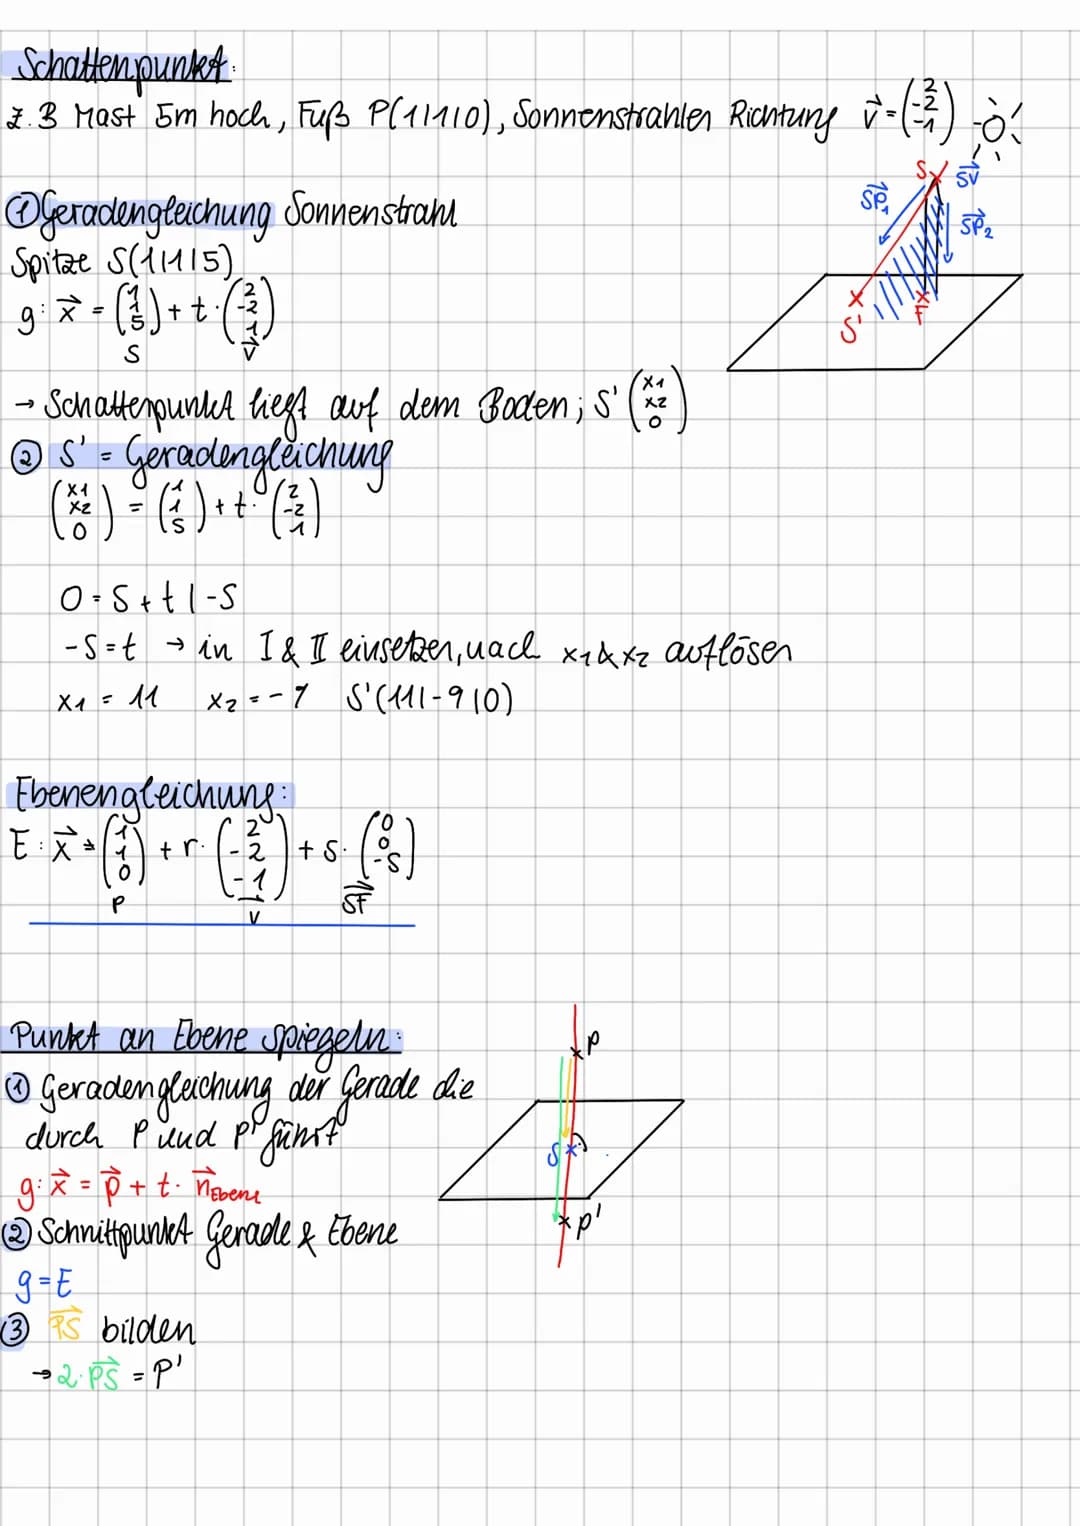 Schattenpunkt:
z.B Mast 5m hoch, Fuß P(1|1|0), Sonnenstrahlen Richtung v⃗ = (2 -2 -1)
① Geradengleichung Sonnenstrahl
Spitze S(1|1|5)
g: x⃗ = (1 1 5) + t · (2 -2 1)
S v⃗
S SV⃗
SP⃗₁ SP⃗₂
S' F
→ Schattenpunkt liegt auf dem Boden; S' (x1 x2 0)
② S' = Geradengleichung
(x1 x2 0) = (1 1 5) + t · (2 -2 1)
0 = 5 + t | -5
-5 = t → in I & II einsetzen, nach x1 & x2 auflösen
x1 = 11 x2 = -7 S'(11|-9|0)
Ebenengleichung:
E: x⃗ = (1 1 0) + r · (2 -2 -1) + s · (0 0 -5)
P v⃗ SF⃗
Punkt an Ebene spiegeln:
① Geradengleichung der Gerade die
durch P und P' führt
g: x⃗ = p⃗ + t · n⃗Ebene
② Schnittpunkt Gerade & Ebene
g = E
③ PS⃗ bilden
→ 2 · PS⃗ = P'
P
S
P'